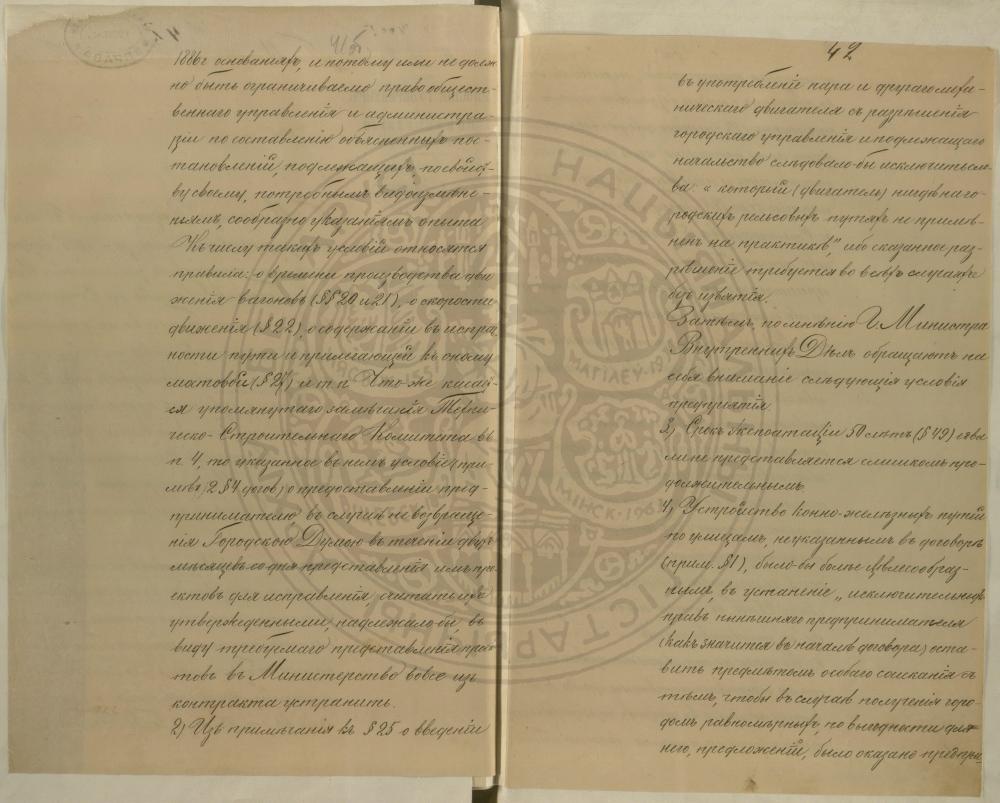 41 об.
1886 г основаніяхъ, и потому или не долж-
но быть ограничиваемо право общест-
веннаго управленія и администра-
ціи по составленію объясненныхъ пос-
тановленій, подлежащихъ, по свойст-
ву своему, потребнымъ видоизмѣне-
ніямъ, сообразно указаніямъ опыта
Къ числу такихъ условій относятся
правила: о времени производства дви-
женія вагоновъ (§§ 20 и 21), о скорости
движенія (§ 22), о содержаніи въ исправ-
ности пути и прилегающей къ оному
мостовой (§ 27) и т. п. Что-же касает-
ся упомянутаго замѣчанія Техни-
ческо-Строительнаго Комитета въ
п 4, то указанное въ немъ условіе (при-
мѣч. 2 § 4 догов) о предоставленіи пред-
принимателю въ случаѣ не возвраще-
нія Городскою Думою въ теченіи двухъ
мѣсяцевъ со дня представленія имъ про-
ектовъ для исправленія, считать ихъ
утвержденными, надлежало-бы, въ
виду требуемаго представленія проэк-
товъ въ Министерство вовсе изъ
контракта устранить.
2) Изъ примѣчанія къ § 25 о введеніи
42
въ употребленіе пара и другаго меха-
ническаго двигателя съ разрѣшенія
городскаго управленія и подлежащаго
начальства слѣдовало-бы исключить сло-
ва: „который (двигатель) нигдѣ на го-
родскихъ рельсовыхъ путяхъ не примѣ-
ненъ на практикѣ," ибо сказанное раз-
рѣшеніе требуется во всѣхъ случаяхъ
безъ изъятія.
Затѣмъ, по мнѣнію Г. Министра
Внутреннихъ Дѣлъ обращаютъ на
себя вниманіе слѣдующія условія
предпріятія
3) Срокъ экспоатаціи 50 лѣтъ (§ 49) едва
ли не представляется слишкомъ про-
должительнымъ.
4) Устройство конно-желѣзныхъ путей
по улицамъ, неуказаннымъ въ договорѣ
(прим. § 1), было-бы болѣе цѣлесообраз-
нымъ, въ устраненіе „исключительныхъ
правъ нынѣшняго предпринимателя
(какъ значится въ началѣ договора) оста-
вить предметомъ особаго соисканія съ
тѣмъ, чтобы въ случаѣ полученія горо-
домъ равномѣрныхъ, по выгодности для
него, предложеній, было оказано предпри-